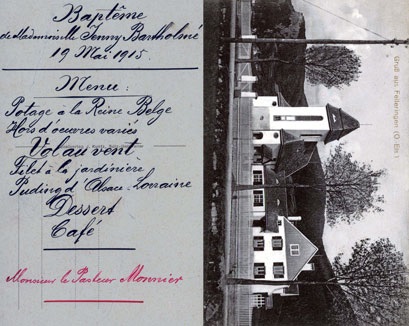 Baptême
de Mademoiselle Jenny Bartholmé
19 Mai 1915.
Menu :
Potage à la Reine Belge
Hors d'oeuvres variés
Vol au vent
Filet à la jardinière
Puding d'Alsace-Lorraine
Dessert
Café
Monsieur le Pasteur Monnier
Gruß aus Felleringen (O.-Els.)